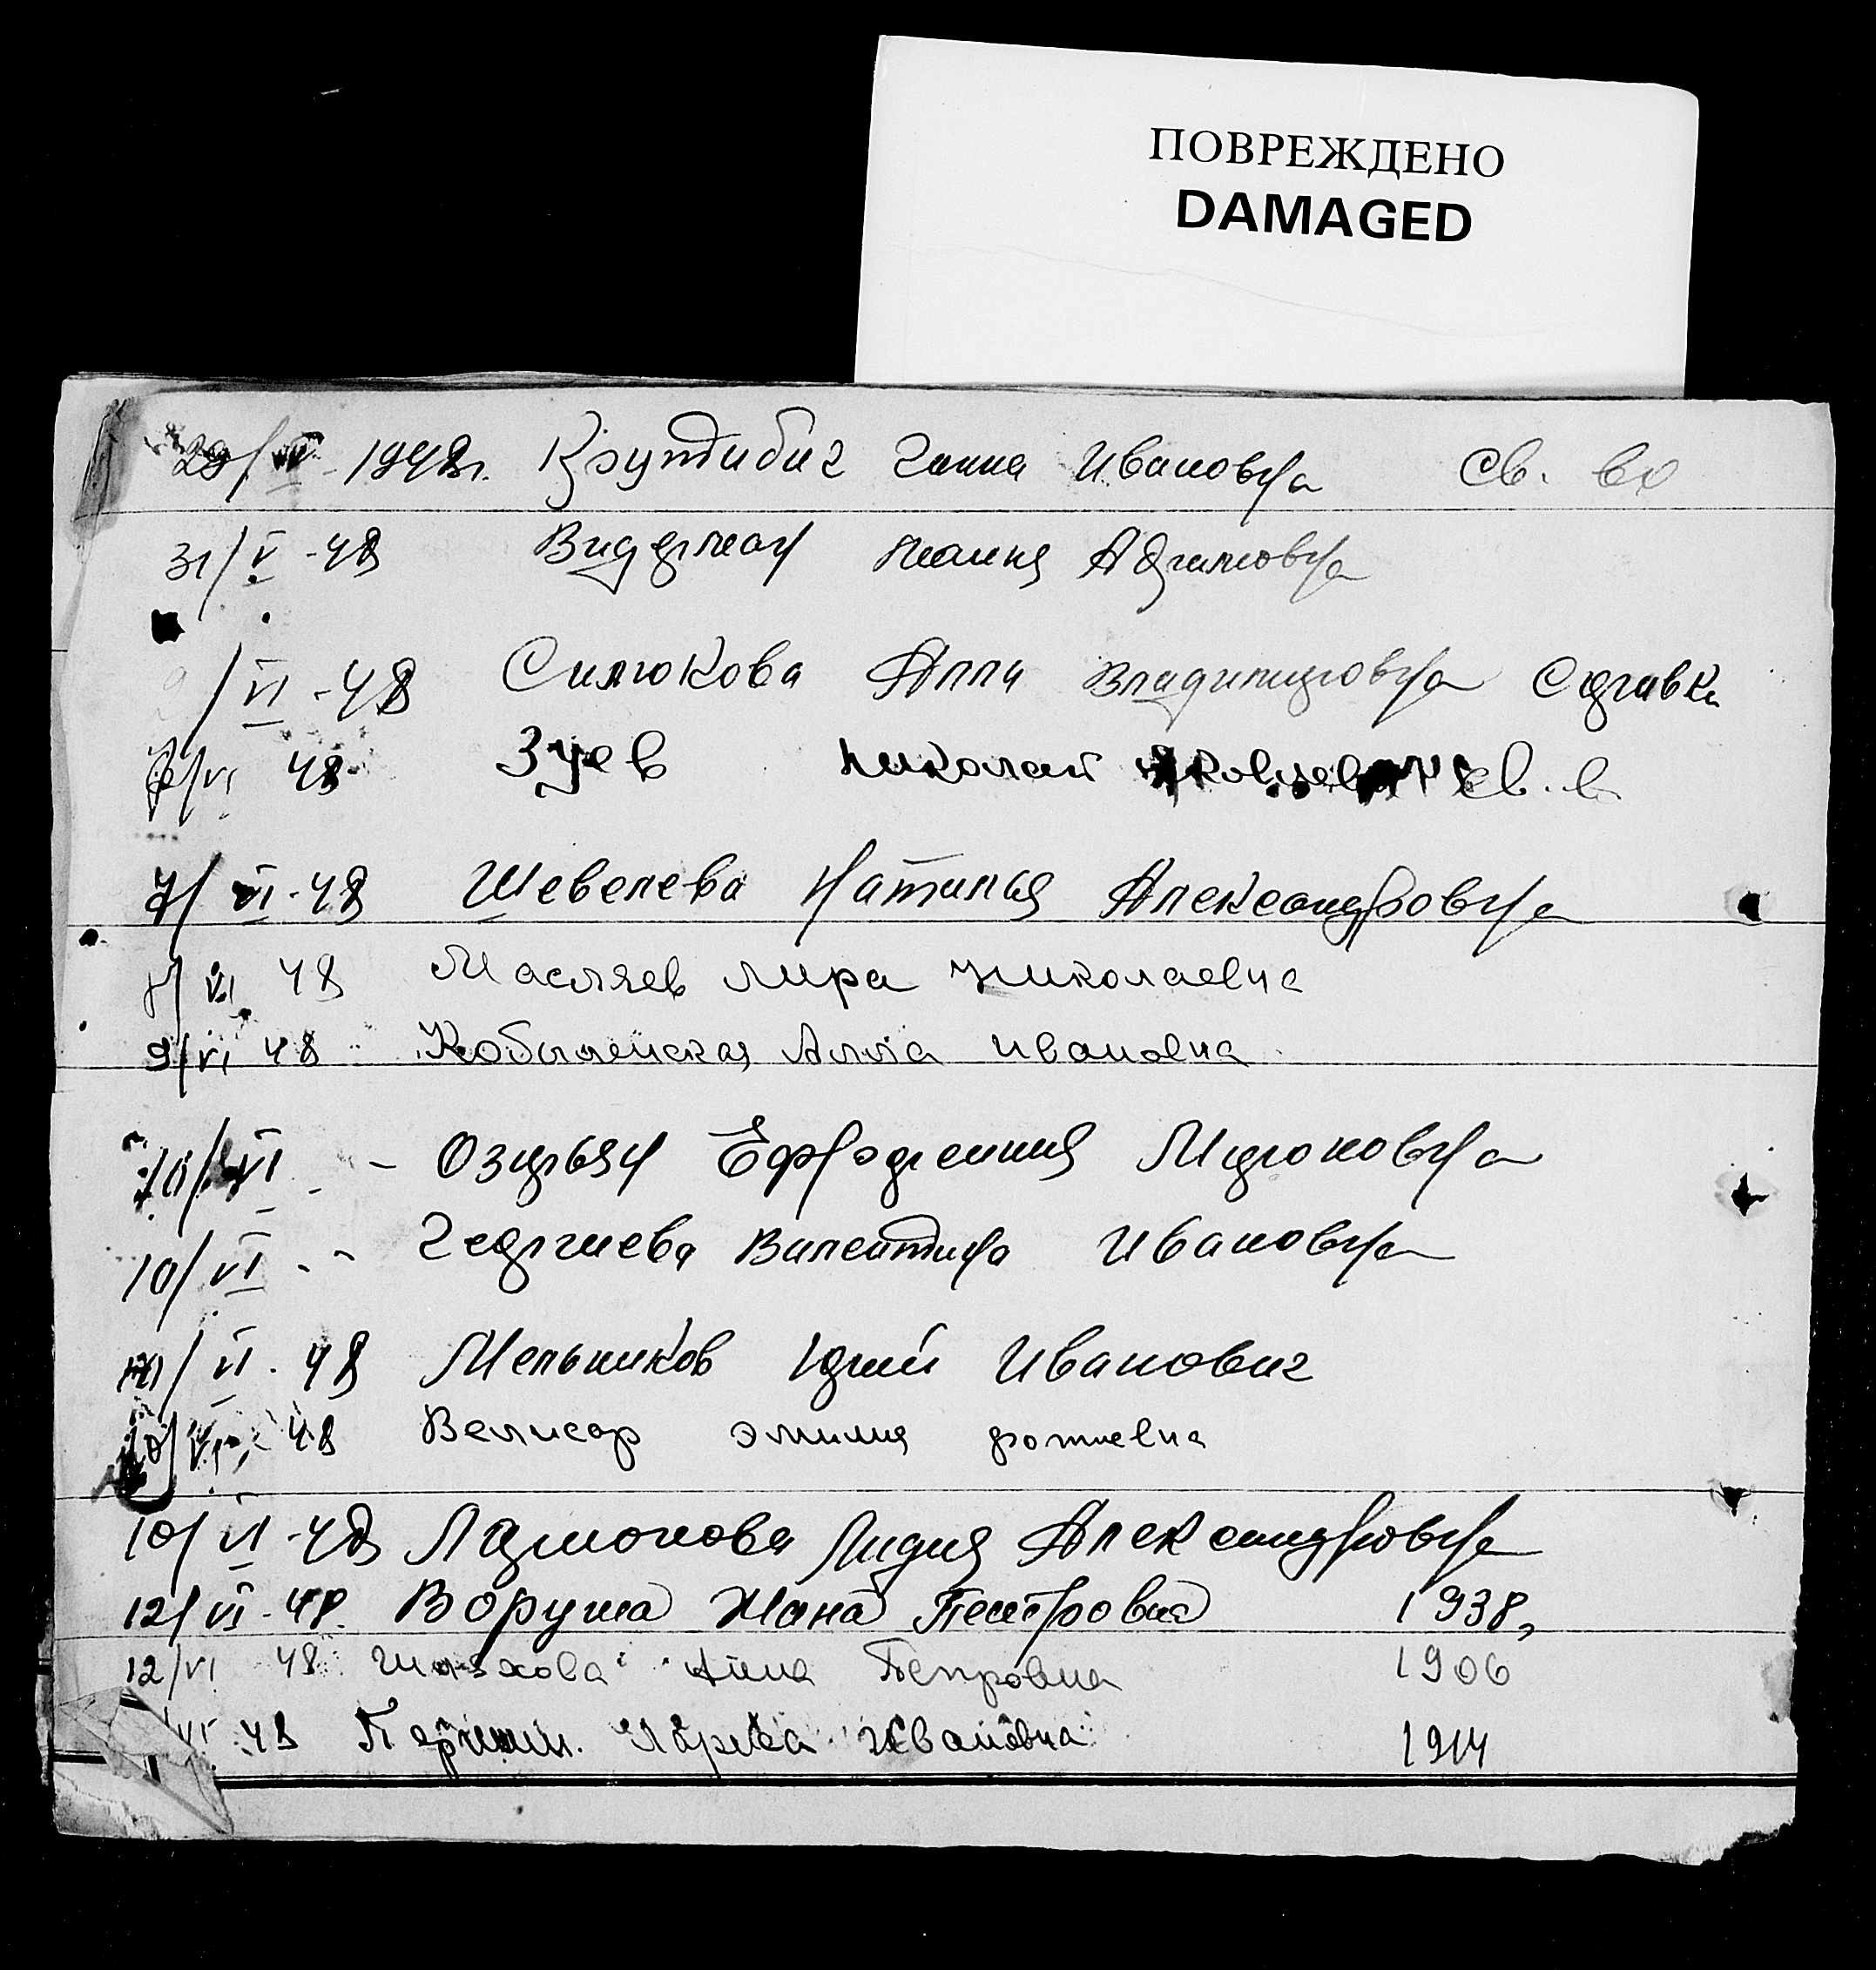 ПОВРЕЖДЕНО
DAMAGED
29/V 1948г. Ганна Ивановна Св. во
31/V-48 Видерман
/VI-48 Симокова Алла Владимировна Справка
/VI 48 Зуев Николай Яковлевич Св. в
7/VI-48 Шевелева Наталья Александровна
8/VI 48 Масляев Лира Николаевна
9/VI 48 Кобылянская Алла Ивановна
10/VI - Озирьян Ефросиния Мироновна
10/VI - - Георгиева Валентина Ивановна
/VI-48 Мельников Юрий Иванович
10/VI 48 Велисар Эмилия Фотиевна
10/VI-48 Ларионова Лидия Александровна
12/VI-48 Воруша Жана Петровна 1938,
12/VI 48 Анна Петровна 1906
/VI 48 Ивановна 1914